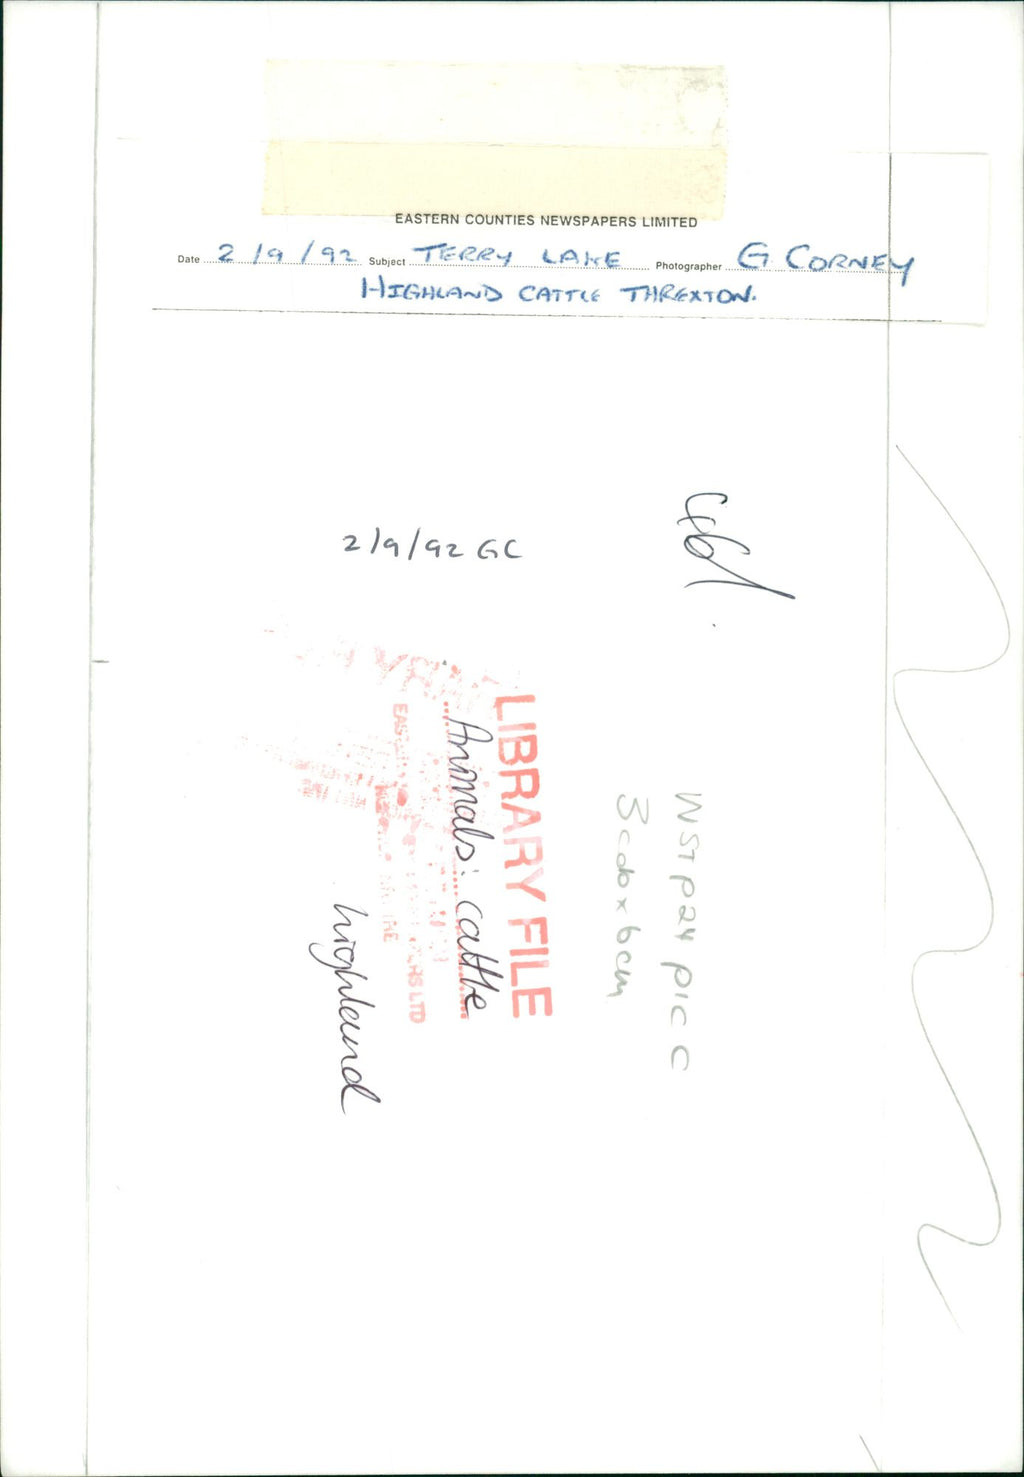 EASTERN COUNTIES NEWSPAPERS LIMITED
Date 2/9/92 Subject TERRY LAKE Photographer G CORNEY
HIGHLAND CATTLE THREXTON.
2/9/92 GC
WST P24 PIC C
3 cols x 6cm
LIBRARY FILE
Animals: cattle
highland